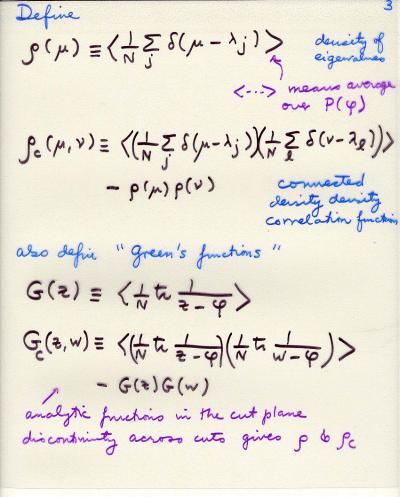 3
Define
ρ(μ) ≡ ⟨ 1/N Σ_j δ(μ − λ_j) ⟩ density of
eigenvalues
<...> means average
over P(φ)
ρ_c(μ, ν) ≡ ⟨(1/N Σ_j δ(μ−λ_j))(1/N Σ_ℓ δ(ν−λ_ℓ))⟩
− ρ(μ) ρ(ν) connected
density density
correlation function
also define "Green's functions"
G(z) ≡ ⟨ 1/N tr 1/(z − φ) ⟩
G_c(z, w) ≡ ⟨(1/N tr 1/(z−φ))(1/N tr 1/(w−φ))⟩
− G(z) G(w)
analytic functions in the cut plane
discontinuity across cuts gives ρ & ρ_c